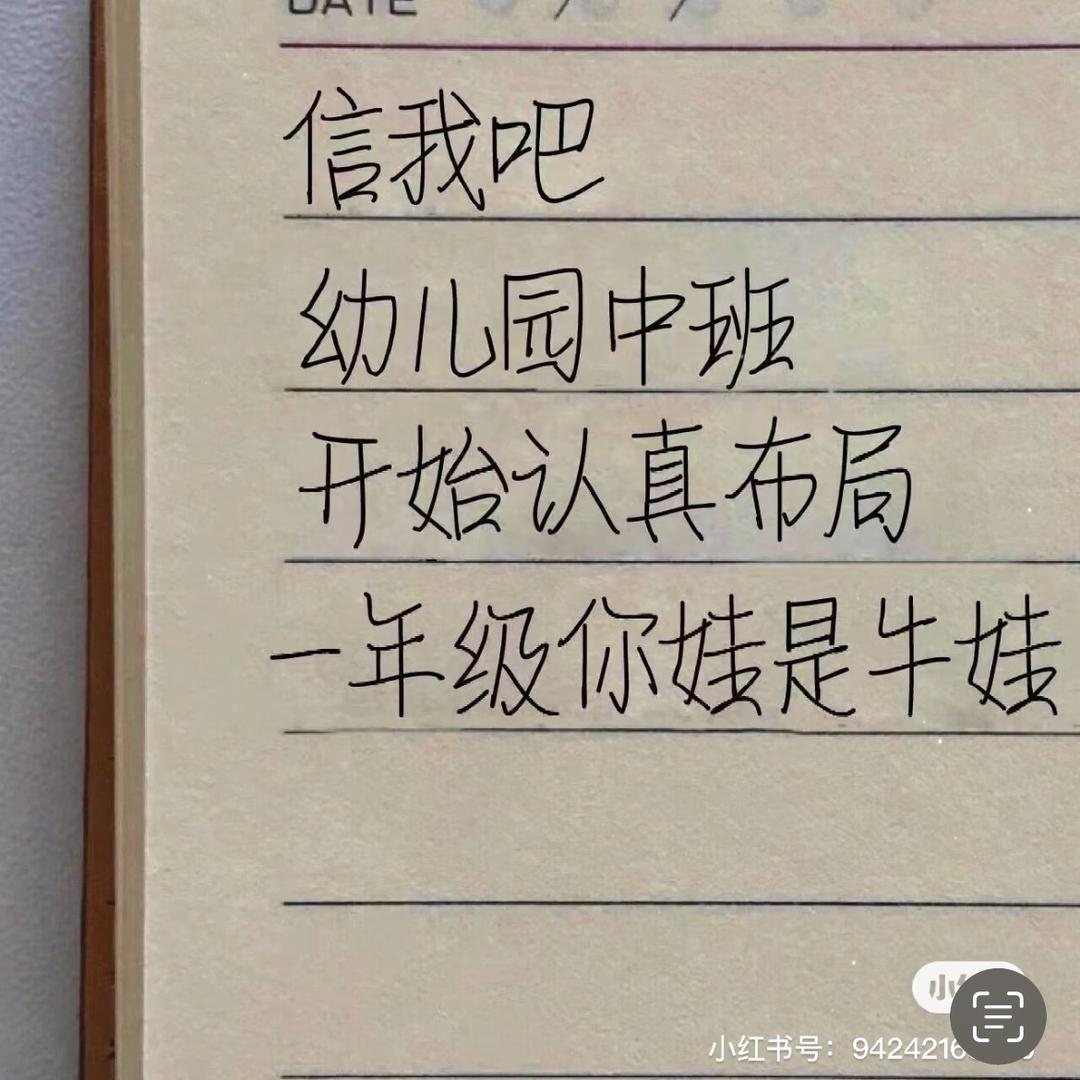 DATE
信我吧
幼儿园中班
开始认真布局
一年级你娃是牛娃
小红书号：9424216